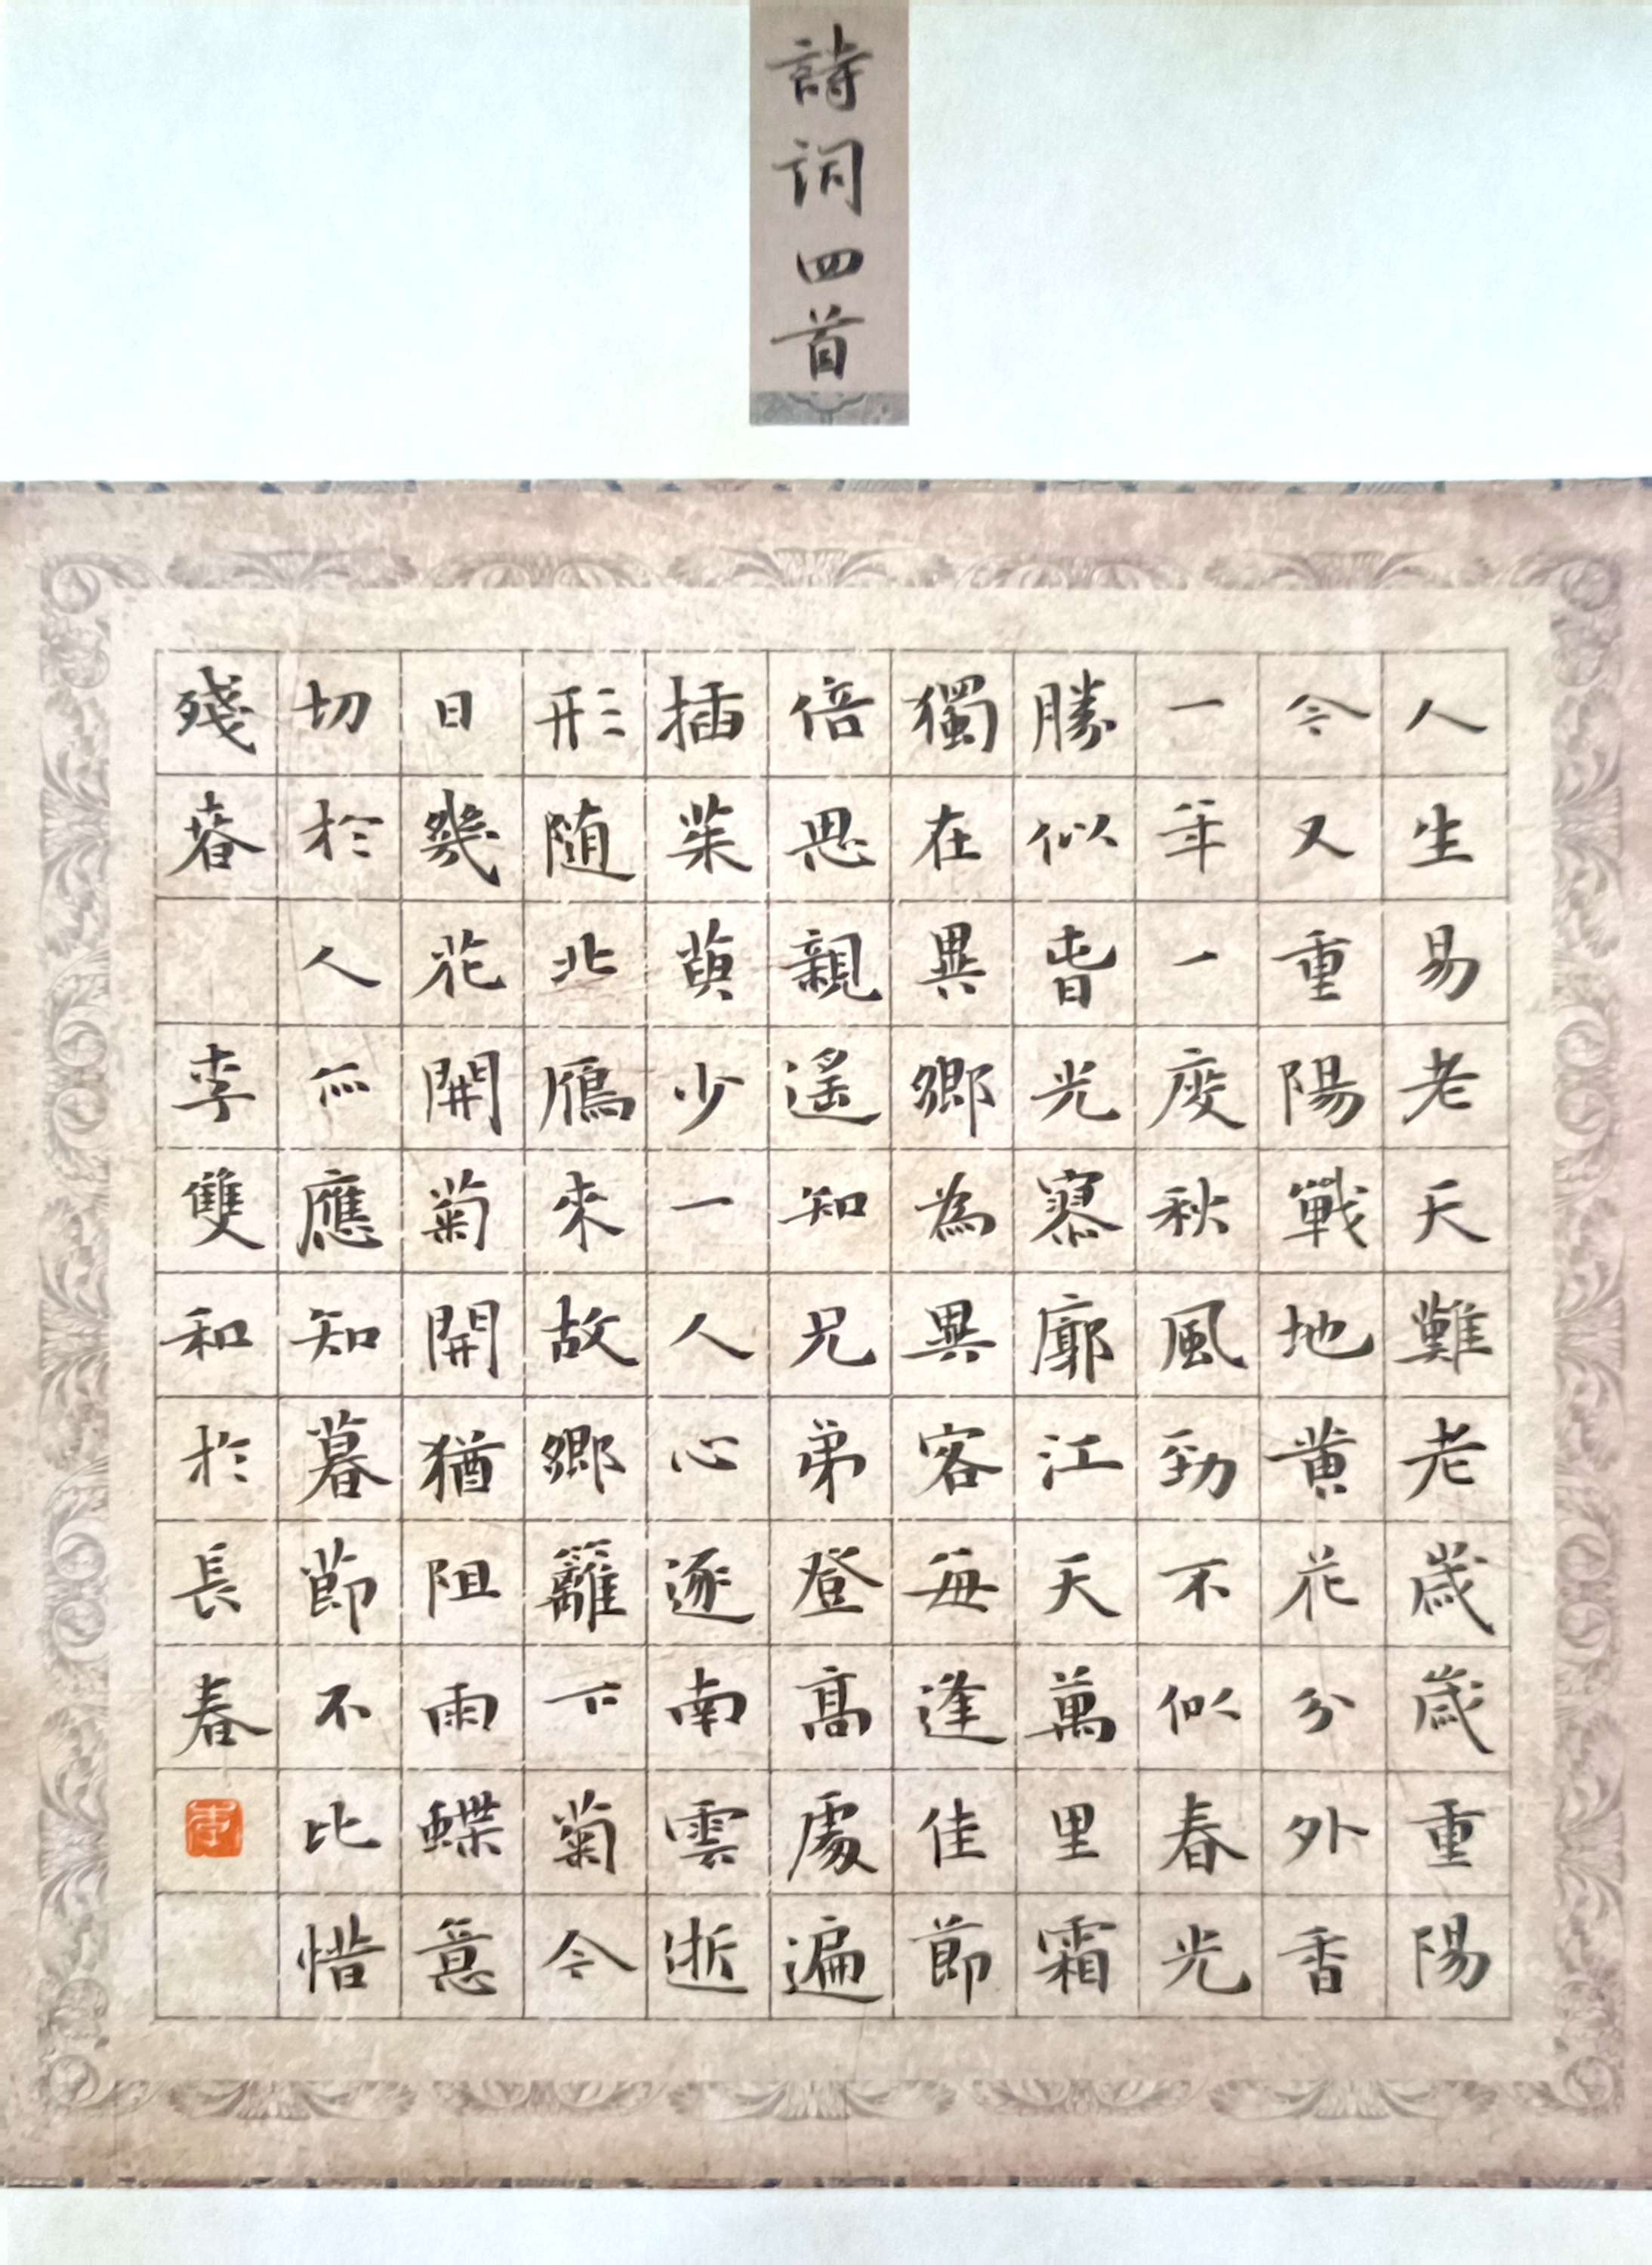 詩詞四首
人生易老天難老歲歲重陽
今又重陽戰地黄花分外香
一年一度秋風勁不似春光
勝似旾光寥廓江天萬里霜
獨在異鄉為異客每逢佳節
倍思親遙知兄弟登髙處遍
插茱萸少一人心逐南雲逝
形随北鴈來故鄉籬下菊今
日幾花開菊開猶阻雨蝶意
切於人亦應知暮節不比惜
殘萅 李雙和於長春
李